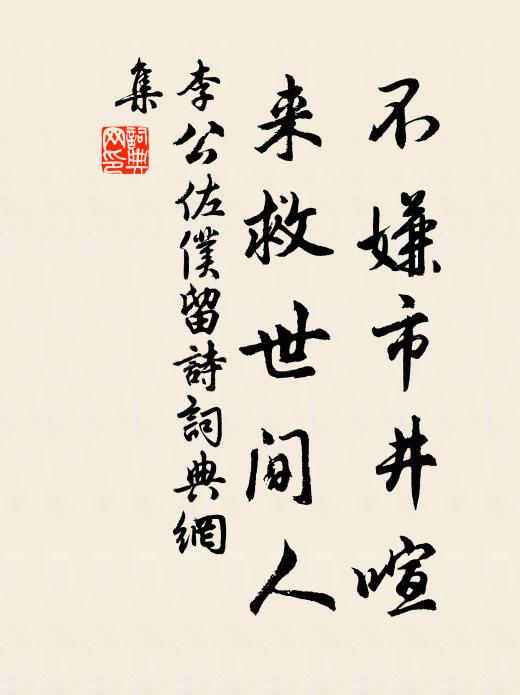 不嫌市井喧
来救世间人
李公佐僕留詩詞典網
集
詞典网印